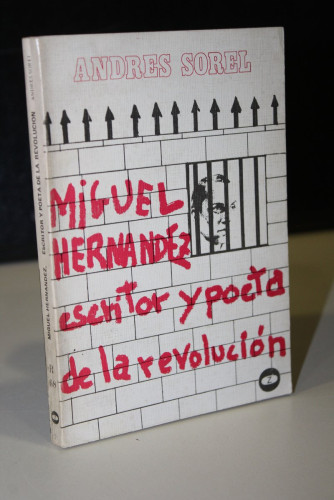 ANDRES SOREL
MIGUEL
HERNANDEZ
escritor y poeta
de la revolución
MIGUEL HERNANDEZ, ESCRITOR Y POETA DE LA REVOLUCION
ANDRES SOREL